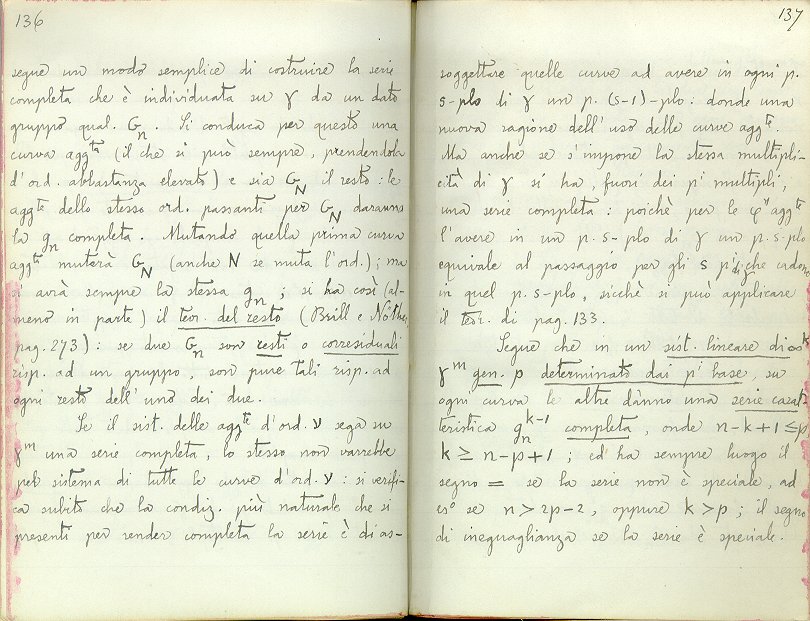 136
segue un modo semplice di costruire la serie
completa che è individuata su γ da un dato
gruppo qual. Gn. Si conduca per questo una
curva aggta (il che si può sempre, prendendola
d'ord. abbastanza elevato) e sia GN il resto: le
aggte dello stesso ord. passanti per GN daranno
la gn completa. Mutando quella prima curva
aggta muterà GN (anche N se muta l'ord.); ma
si avrà sempre la stessa gn; si ha così (al-
meno in parte) il teor. del resto (Brill e Nöther
pag. 273): se due Gn son resti o corresiduali
risp. ad un gruppo, son pure tali risp. ad
ogni resto dell'uno dei due.
Se il sist. delle aggte d'ord. ν sega su
γm una serie completa, lo stesso non varrebbe
pel sistema di tutte le curve d'ord. ν: si verifi-
ca subito che la condiz. più naturale che si
presenti per render completa la serie è di as-
137
soggettare quelle curve ad avere in ogni p.
s-plo di γ un p. (s-1)-plo: donde una
nuova ragione dell'uso delle curve aggte.
Ma anche se s'impone la stessa multipli-
cità di γ si ha, fuori dei pi multipli,
una serie completa: poichè per le φν aggte
l'avere in un p. s-plo di γ un p. s-plo
equivale al passaggio per gli s pi di g che cadono
in quel p. s-plo, sicchè si può applicare
il teor. di pag. 133.
Segue che in un sist. lineare di ∞k
γm gen. p determinato dai pi base, su
ogni curva le altre dànno una serie carat-
teristica gnk-1 completa, onde n-k+1≤p,
k ≥ n-p+1; ed ha sempre luogo il
segno = se la serie non è speciale, ad
eso se n > 2p-2, oppure k > p; il segno
di ineguaglianza se la serie è speciale.